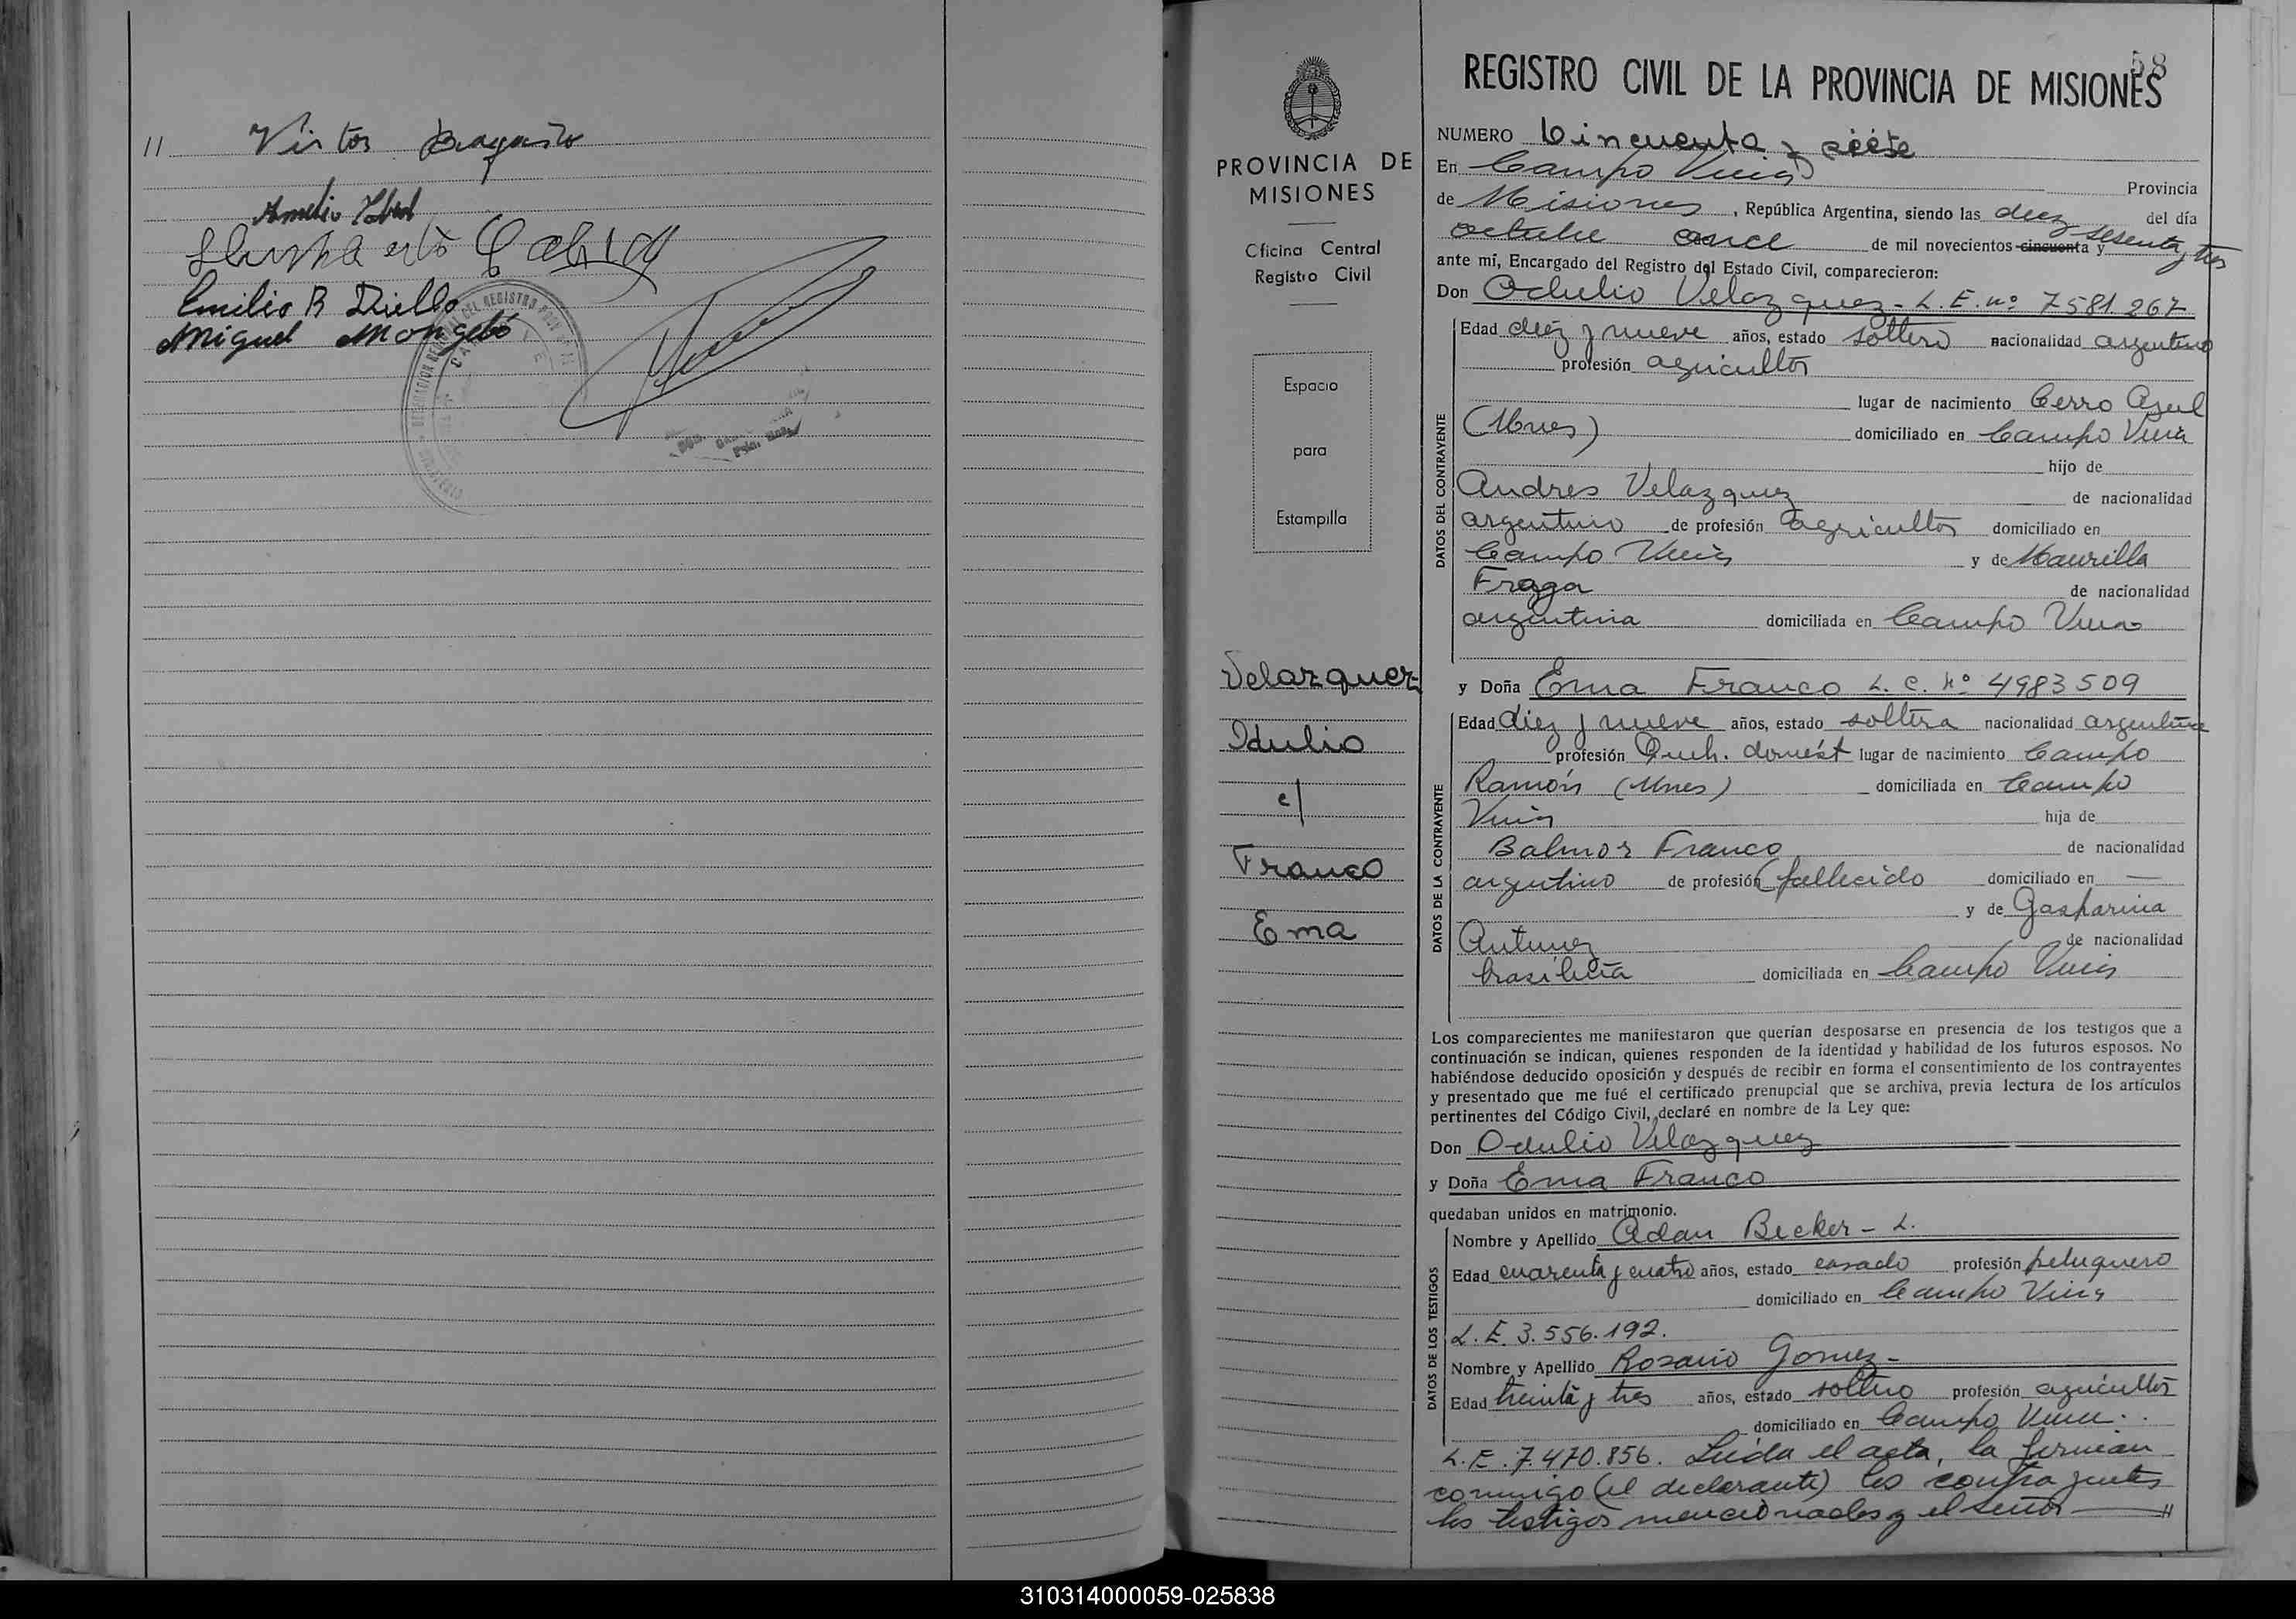 //
Victor
Amelio
Emilio R Diello
Miguel Mongeló
58
REGISTRO CIVIL DE LA PROVINCIA DE MISIONES
PROVINCIA DE
MISIONES
Oficina Central
Registro Civil
Espacio
para
Estampilla
Velazquez
Odulio
c/
Franco
Ema
NUMERO Cincuenta y siete
En Campo Viera Provincia
de Misiones, República Argentina, siendo las diez del día
octubre once de mil novecientos cincuenta y sesenta y tres
ante mí, Encargado del Registro del Estado Civil, comparecieron:
Don Odulio Velazquez - L. E. nº 7581.267
DATOS DEL CONTRAYENTE
Edad diez y nueve años, estado soltero nacionalidad argentino
profesión agricultor
lugar de nacimiento Cerro Azul
(Mnes) domiciliado en Campo Viera
hijo de
Andres Velazquez de nacionalidad
argentino de profesión agricultor domiciliado en
Campo Viera y de Maurilla
Fraga de nacionalidad
argentina domiciliada en Campo Viera
y Doña Ema Franco L. C. Nº 4983509
DATOS DE LA CONTRAYENTE
Edad diez y nueve años, estado soltera nacionalidad argentina
profesión Queh. domést lugar de nacimiento Campo
Ramón (Mnes) domiciliada en Campo
Viera hija de
Balmor Franco de nacionalidad
argentino de profesión (fallecido domiciliado en —
y de Gasparina
Antunez de nacionalidad
brasileña domiciliada en Campo Viera
Los comparecientes me manifestaron que querían desposarse en presencia de los testigos que a
continuación se indican, quienes responden de la identidad y habilidad de los futuros esposos. No
habiéndose deducido oposición y después de recibir en forma el consentimiento de los contrayentes
y presentado que me fué el certificado prenupcial que se archiva, previa lectura de los artículos
pertinentes del Código Civil, declaré en nombre de la Ley que:
Don Odulio Velazquez
y Doña Ema Franco
quedaban unidos en matrimonio.
DATOS DE LOS TESTIGOS
Nombre y Apellido Adan Becker - L.
Edad cuarenta y cuatro años, estado casado profesión peluquero
domiciliado en Campo Viera
L. E. 3.556.192.
Nombre y Apellido Rosario Gomez -
Edad treinta y tres años, estado soltero profesión agricultor
domiciliado en Campo Viera.
L. E. 7.470.856. Leída el acta, la firman
conmigo (el declarante) los contrayentes
los testigos mencionados y el señor — //
310314000059-025838